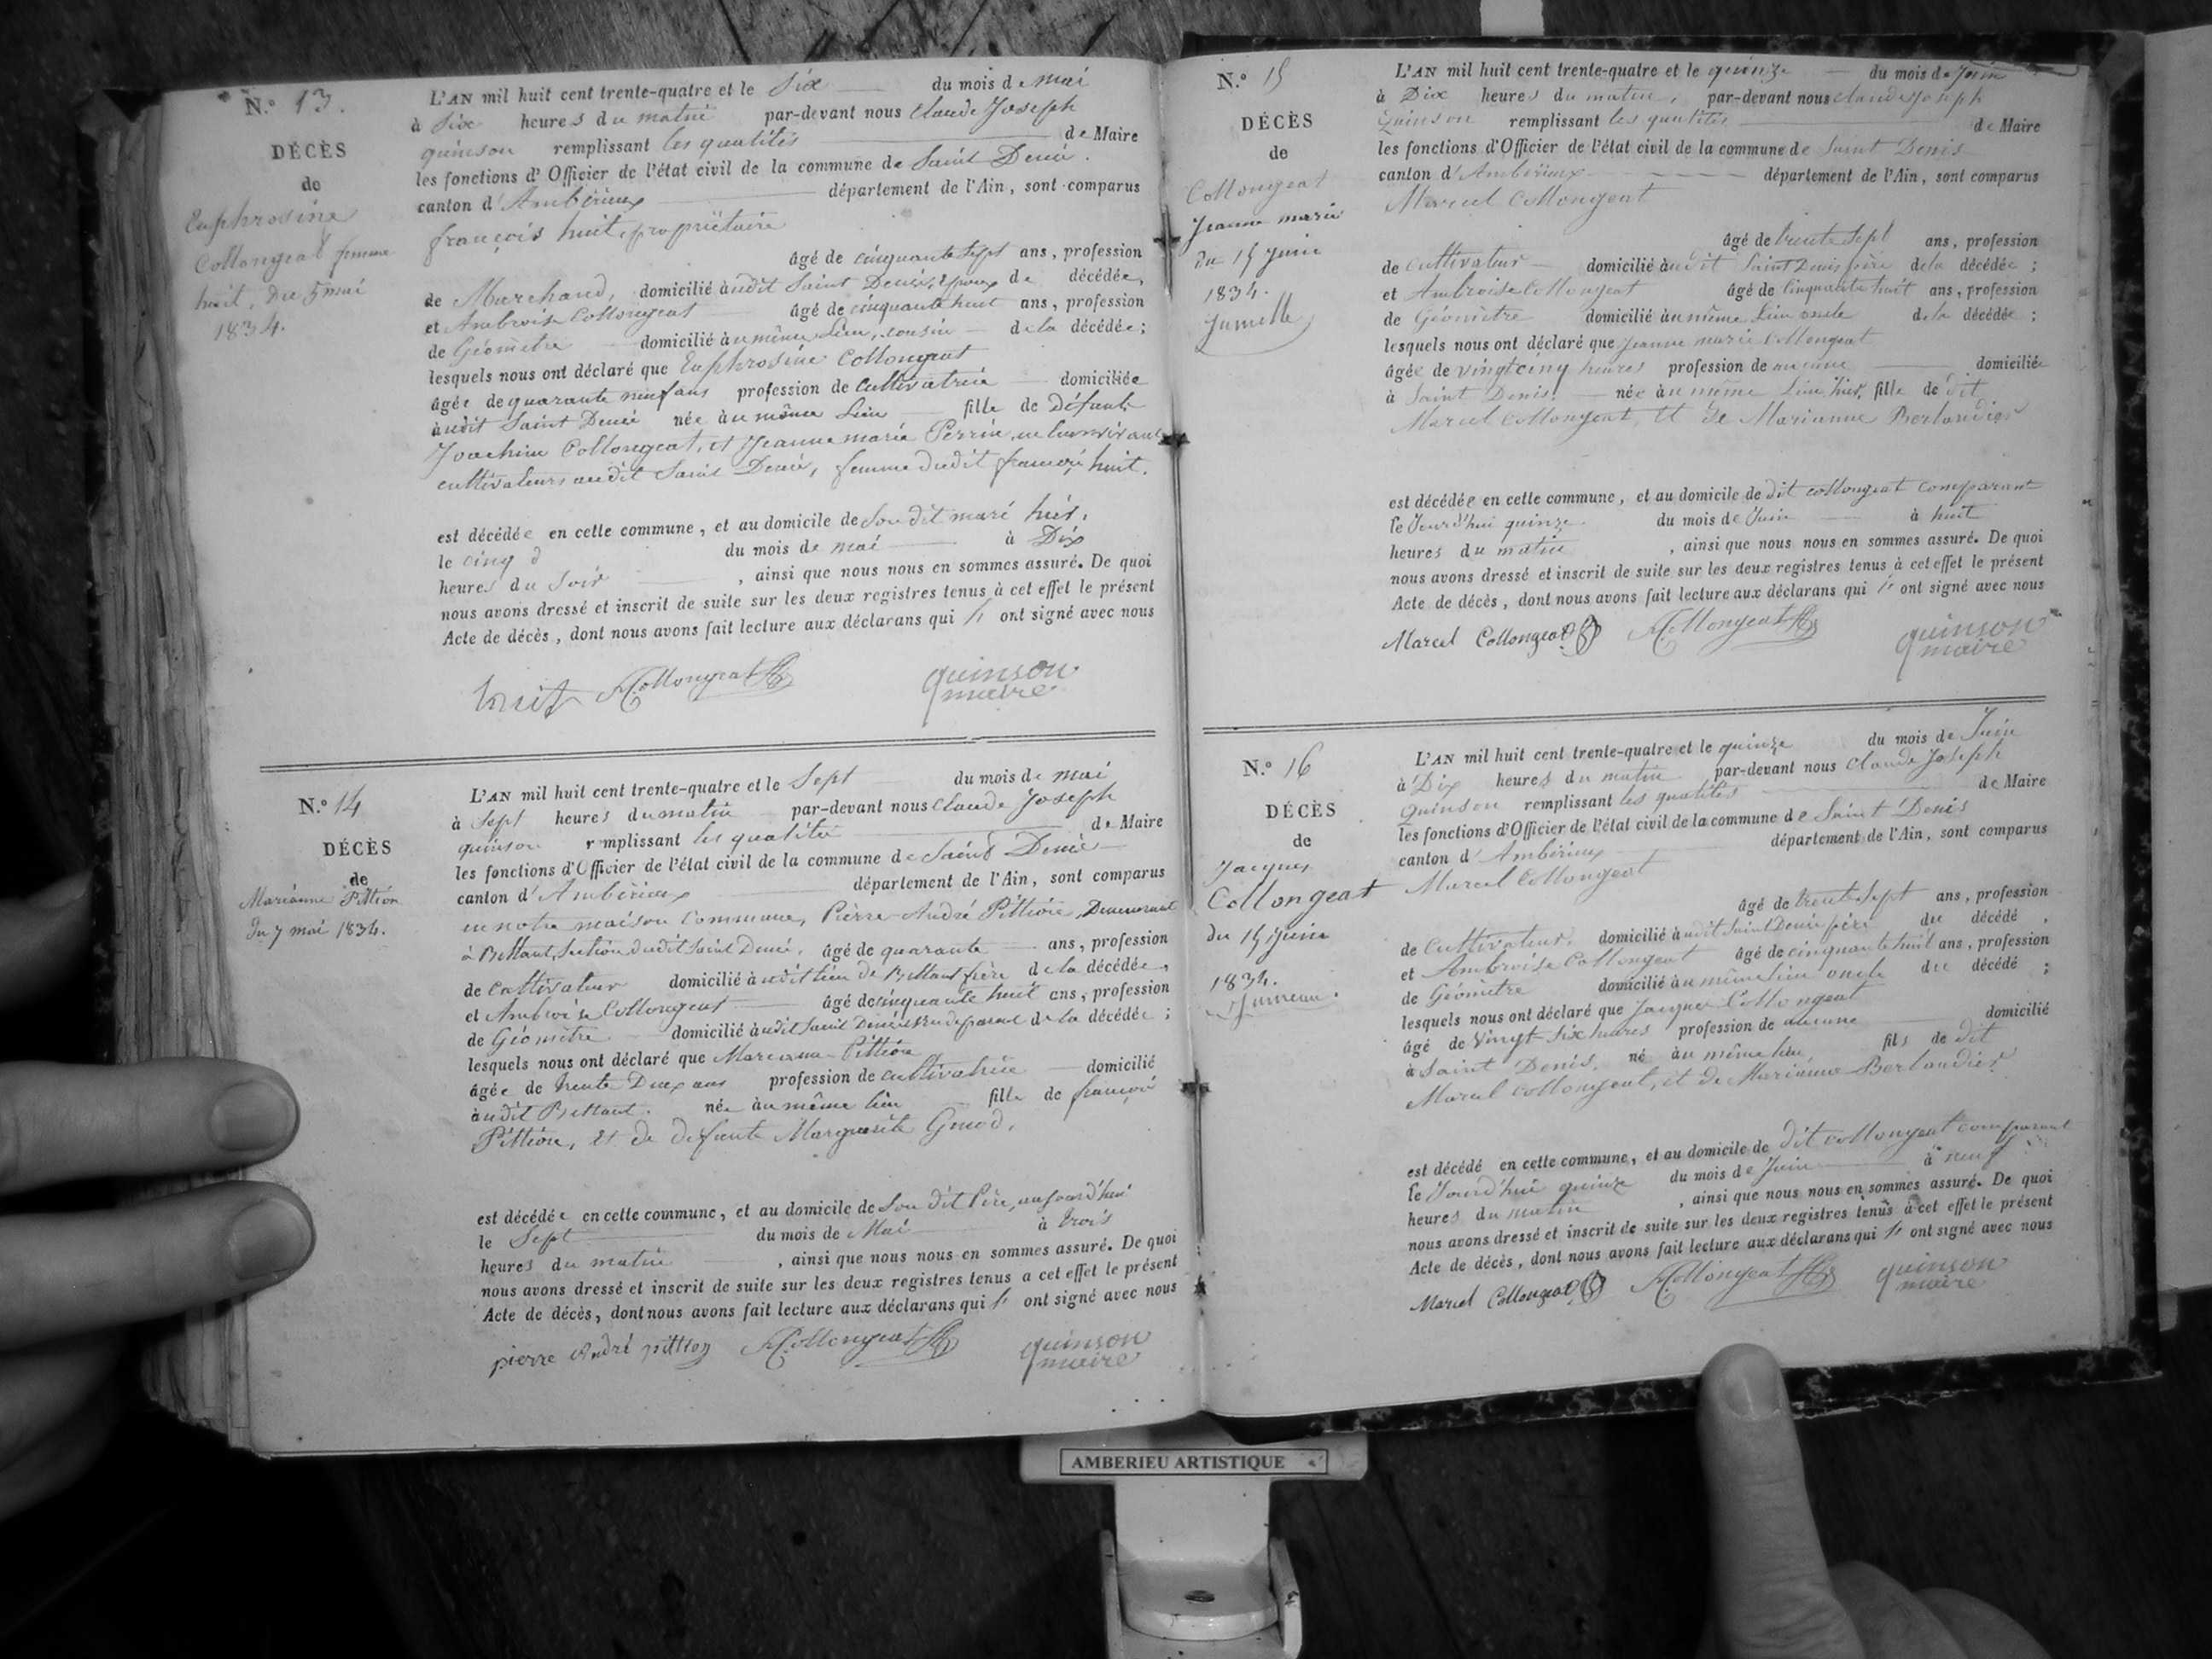 N.º 13.
DÉCÈS
de
Euphrosine
Collongeat femme
huit, du 5 mai
1834.
L'AN mil huit cent trente-quatre et le Six du mois de mai
à Six heures du matin par-devant nous Claude Joseph
quinson remplissant les qualités de Maire
les fonctions d'Officier de l'état civil de la commune de Saint Denis.
canton d'Ambérieux département de l'Ain, sont comparus
françois huit, propriétaire
âgé de cinquante Sept ans, profession
de Marchand, domicilié àudit Saint Denis, Epoux de décédée,
et Ambroise Collongeat âgé de cinquante huit ans, profession
de Géomètre domicilié àu même Lieu, cousin de la décédée;
lesquels nous ont déclaré que Euphrosine Collongeat
âgée de quarante neuf ans profession de Cultivatrice domiciliée
àudit Saint Denis née àu même Lieu fille de Défunt
Joachim Collongeat, et Jeanne marie Perrin,
cultivateurs audit Saint Denis, femme dudit françois huit.
est décédée en cette commune, et au domicile de Son dit mari hier,
le cinq du mois de mai à Dix
heures du Soir , ainsi que nous nous en sommes assuré. De quoi
nous avons dressé et inscrit de suite sur les deux registres tenus à cet effet le présent
Acte de décès, dont nous avons fait lecture aux déclarans qui ont signé avec nous
huit Collongeat quinson
maire
N.º 14
DÉCÈS
de
Marianne Pittion
Du 7 mai 1834.
L'AN mil huit cent trente-quatre et le Sept du mois de mai
à Sept heures du matin par-devant nous Claude Joseph
quinson remplissant les qualités de Maire
les fonctions d'Officier de l'état civil de la commune de Saint Denis
canton d'Ambérieux département de l'Ain, sont comparus
en notre maison Commune, Pierre-André Pittion, Demeurant
à Bettant, Section dudit Saint Denis, âgé de quarante ans, profession
de Cultivateur domicilié àudit lieu de Bettant frère de la décédée,
et Ambroise Collongeat âgé de cinquante huit ans, profession
de Géomètre domicilié àudit Saint Denis de la décédée;
lesquels nous ont déclaré que Marianne Pittion
âgée de trente Deux ans profession de cultivatrice domicilié
àudit Bettant. née àu même lieu fille de françois
Pittion, et de défunte Marguerite
est décédée en cette commune, et au domicile de Son dit Père, aujourd'hui
le Sept du mois de Mai à trois
heures du matin , ainsi que nous nous en sommes assuré. De quoi
nous avons dressé et inscrit de suite sur les deux registres tenus a cet effet le présent
Acte de décès, dont nous avons fait lecture aux déclarans qui ont signé avec nous
pierre andré pittion Collongeat quinson
maire
N.º 15
DÉCÈS
de
Collongeat
Jeanne marie
du 15 juin
1834.
Jumelle
L'AN mil huit cent trente-quatre et le quinze du mois de Juin
à Dix heures du matin, par-devant nous claude Joseph
Quinson remplissant les qualités de Maire
les fonctions d'Officier de l'état civil de la commune de Saint Denis
canton d'Ambérieux département de l'Ain, sont comparus
Marcel Collongeat
âgé de trente Sept ans, profession
de Cultivateur domicilié àudit Saint Denis père de la décédée;
et Ambroise Collongeat âgé de Cinquante huit ans, profession
de Géomètre domicilié àu même Lieu oncle de la décédée;
lesquels nous ont déclaré que Jeanne marie Collongeat
âgée de vingt cinq heures profession de aucune domiciliée
à Saint Denis. née àu même Lieu hier, fille de dit
Marcel Collongeat, et de Marianne Berlandier
est décédée en cette commune, et au domicile de dit collongeat comparant
le Jourd'hui quinze du mois de Juin à huit
heures du matin , ainsi que nous nous en sommes assuré. De quoi
nous avons dressé et inscrit de suite sur les deux registres tenus à cet effet le présent
Acte de décès, dont nous avons fait lecture aux déclarans qui ont signé avec nous
Marcel Collongeat Collongeat quinson
maire
N.º 16
DÉCÈS
de
Jacques
Collongeat
du 15 juin
1834.
Jumeau.
L'AN mil huit cent trente-quatre et le quinze du mois de Juin
à Dix heures du matin par-devant nous Claude Joseph
Quinson remplissant les qualités de Maire
les fonctions d'Officier de l'état civil de la commune de Saint Denis
canton d'Ambérieux département de l'Ain, sont comparus
Marcel Collongeat
âgé de trente Sept ans, profession
de Cultivateur, domicilié àudit Saint Denis père du décédé,
et Ambroise Collongeat âgé de cinquante huit ans, profession
de Géomètre domicilié àu même lieu oncle du décédé;
lesquels nous ont déclaré que Jacques Collongeat
âgé de Vingt-Six heures profession de aucune domicilié
à Saint Denis. né àu même lieu, fils de dit
Marcel collongeat, et de Marianne Berlandier
est décédé en cette commune, et au domicile de dit collongeat comparant
le Jourd'hui quinze du mois de Juin à neuf
heures du matin , ainsi que nous nous en sommes assuré. De quoi
nous avons dressé et inscrit de suite sur les deux registres tenus à cet effet le présent
Acte de décès, dont nous avons fait lecture aux déclarans qui ont signé avec nous
Marcel Collongeat Collongeat quinson
maire
AMBERIEU ARTISTIQUE